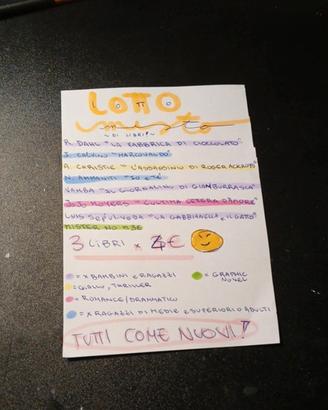 LOTTO
misto
~ DI LIBRI ~
R. DAHL "LA FABBRICA DI CIOCCOLATO"
I. CALVINO "MARCOVALDO"
A. CHRISTIE "L'ASSASSINIO DI ROGER ACKROYD"
N. AMMANITI "IO E TE"
VAMBA "IL GIORNALINO DI GIAMBURRASCA"
JOJO MOYES "L'ULTIMA LETTERA D'AMORE"
LUIS SEPULVEDA "LA GABBIANELLA E IL GATTO"
MISTER NO
3 LIBRI x €
= x BAMBINI E RAGAZZI
= GRAPHIC NOVEL
= GIALLO, THRILLER
= ROMANCE/DRAMMATICO
= x RAGAZZI DI MEDIE E SUPERIORI O ADULTI
TUTTI COME NUOVI!